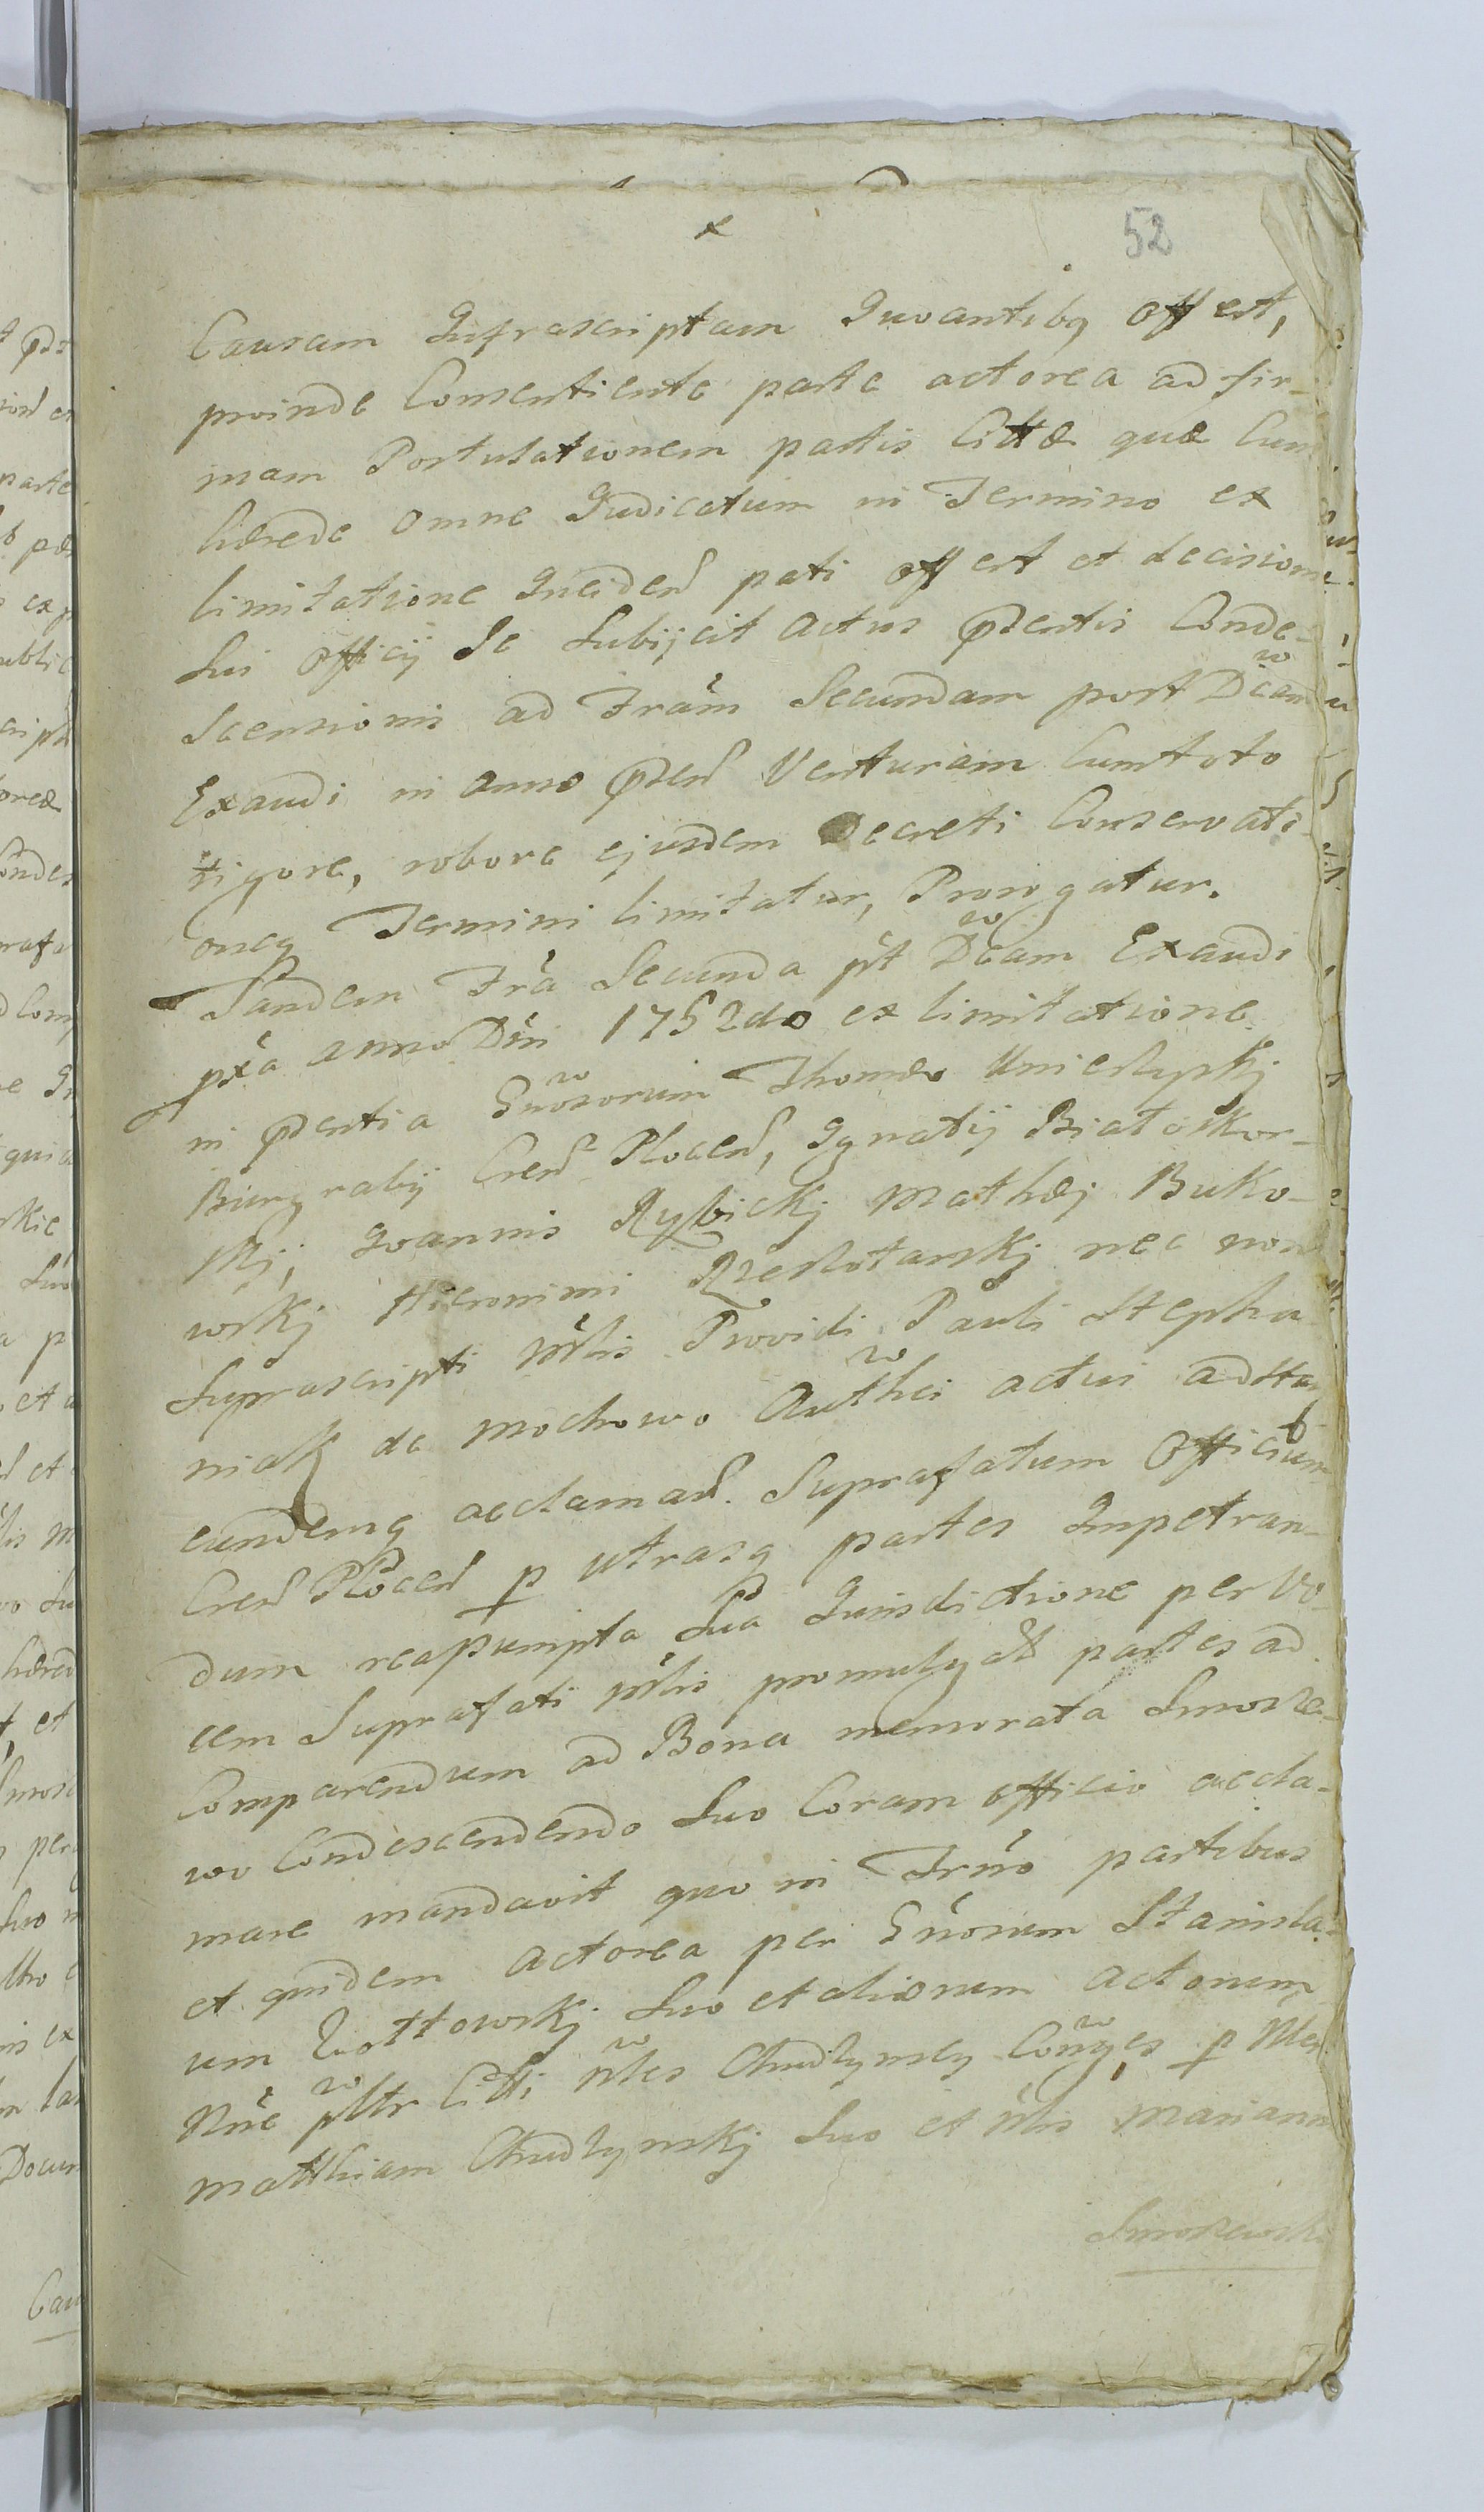 52
Causam Infrascriptam Iuvantibq offert,
proinde Consentiente parte actorea ad fir-
mam Postulationem partis Cittæ quæ Cum
hærede omne Iudicatum in Termino ex
limitatione Inciden pati offert et decisioni
sui Officij Se Subijcit actus pñtis Conde-
scensionis ad Frãm Secundam post Dcam
Exaudi in anno pñten Venturam Cum toto
rigore, robore ejusdem Decreti Conservati-
oneq Termini limitatur, Prorogatur.
Tandem Frã Secunda pt Dcam Exaudi
pxã anno Dni 1752do ex limitatione
in pñtia Gnosorum Thomæ Umieskyskj
Burgrabij Cren Plocen, Ignatij Białoskor-
skj, Joannis Rybickj Mathæj Buko-
wskj Hieronimi Rzeszotarskj nec non
Suprascripti Mlis Providi Pauli Stepha
niak de Mochowo Authci actui adsta
eundemq acclaman. Suprafatum Officium
Cren Plocen p utrasq partes Impetran-
dum reassumpta Sua Jurisdictione per vo-
cem Suprafati Mlis promulgat partes ad
Comparendum ad Bona memorata Smosze-
wo Condescendendo Suo Coram officio accla-
mare mandavit quo in Trño partibus
et quidem actorea per Gñosum Stanisla-
um Zottowskj Suo et aliorum actorum
Nñe pltr Citti Nles Chudzynscy Cõnges p Nlem
Matthiam Chudzynskj Suo et Nlis Marianæ
Smoszewski